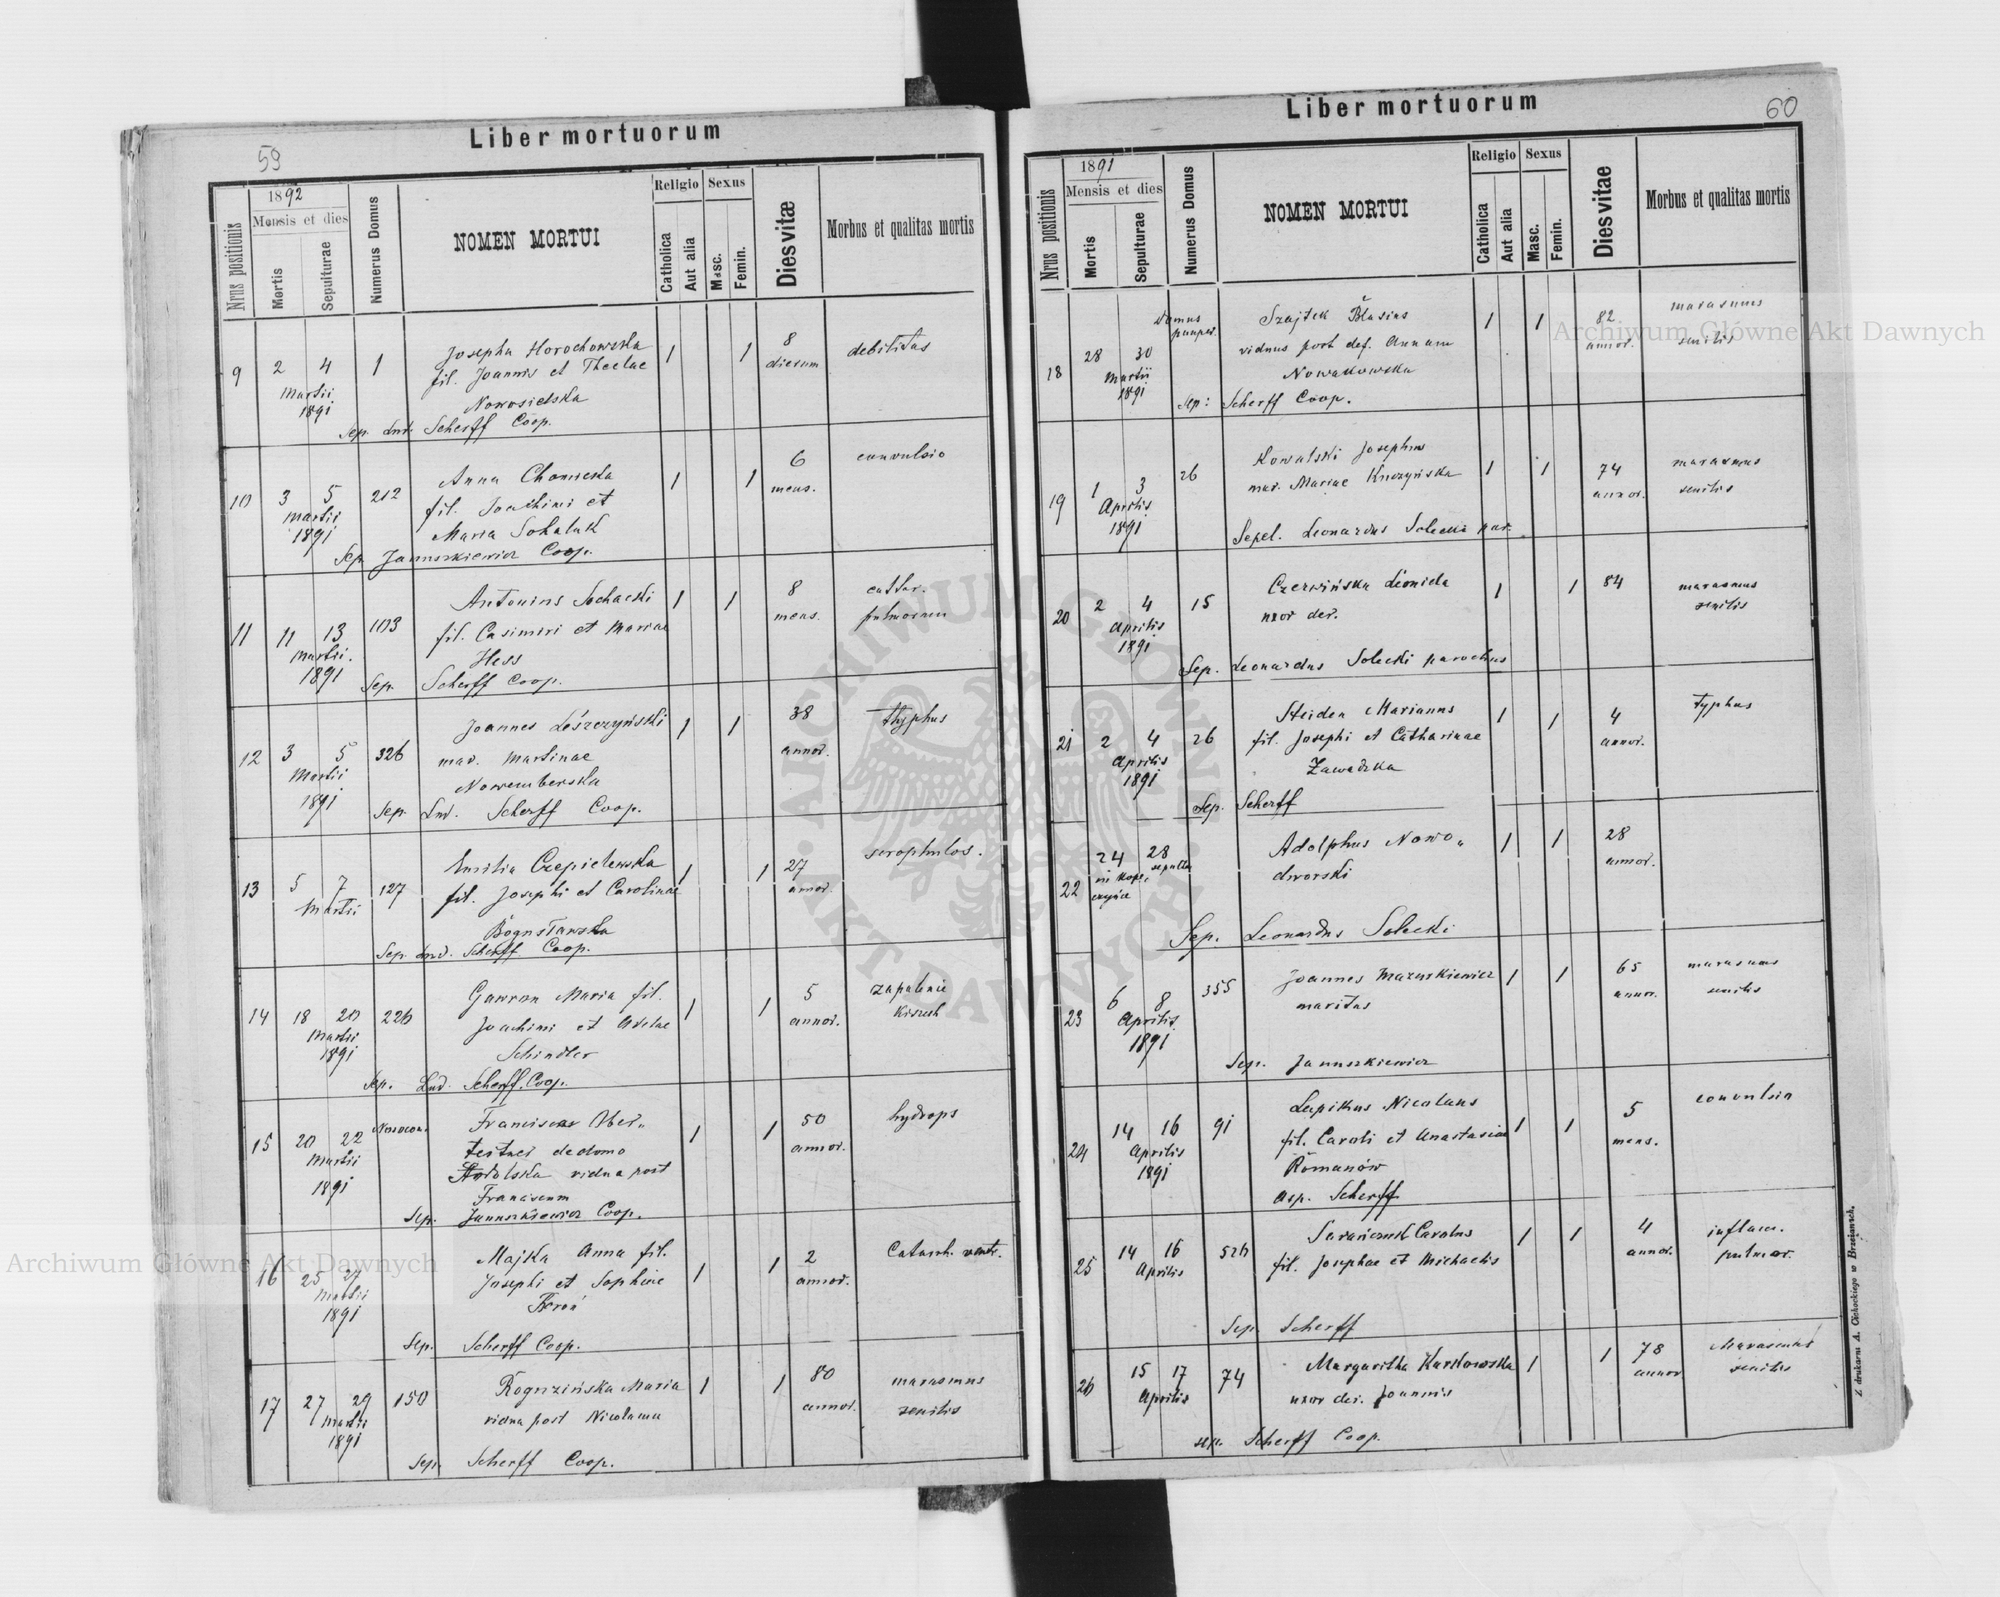 59
Liber mortuorum
Nrus positionis
1892
Mensis et dies
Mortis
Sepulturae
Numerus Domus
NOMEN MORTUI
Religio
Sexus
Catholica
Aut alia
Masc.
Femin.
Dies vitæ
Morbus et qualitas mortis
9 2 4 1 Josepha Horochowska 1 1 8 debilitas
Martii fil. Joannis et Theclae dierum
1891 Nowosielska
Sep. Lud. Scherff Coop.
10 3 5 212 Anna 1 1 6 convulsio
Martii fil. Joachimi et mens.
1891 Maria Sokaluk
Sep. Januszkiewicz Coop.
11 11 13 1103 Antonius Sochacki 1 1 8 cathar.
Martii. fil. Casimiri et Mariae mens. pulmonum
1891 Hess
Sep. Scherff Coop.
12 3 5 326 Joannes Leszczyński 1 1 38 thyphus
Martii mar. Martinae annor.
1891 Nowemberska
Sep. Lud. Scherff Coop.
13 5 7 127 Emilia Czepielewska 1 1 27 scrophulos.
Martii fil. Josephi et Carolinae annor.
Bogusławska
Sep. Lud. Scherff Coop.
14 18 20 226 Gawron Maria fil. 1 1 5 zapalenie
Martii Joachimi et Adelae annor. kiszek
1891 Schindler
Sep. Lud. Scherff. Coop.
15 20 22 Nosocom. Francisca Ober- 1 1 50 hydrops
Martii de domo annor.
1891 vidua post
Franciscum
Sep. Januszkiewicz Coop.
16 25 27 Majka Anna fil. 1 1 2 Catarrh. ventr.
Martii Josephi et Sophiae annor.
1891
Sep. Scherff Coop.
17 27 29 150 Rogozińska Maria 1 1 80 marasmus
Martii vidua post Nicolaum annor. senilis
1891
Sep. Scherff Coop.
60
Liber mortuorum
Nrus positionis
1891
Mensis et dies
Mortis
Sepulturae
Numerus Domus
NOMEN MORTUI
Religio
Sexus
Catholica
Aut alia
Masc.
Femin.
Dies vitae
Morbus et qualitas mortis
18 28 30 Domus pauper. Szajtek Blasius 1 1 82 marasmus
Martii viduus post def. Annam annor. senilis
1891 Nowakowska
Sep: Scherff Coop.
19 1 3 26 Kowalski Josephus 1 1 74 marasmus
Aprilis mar. Mariae Kuczyńska annor. senilis
1891
Sepel. Leonardus Solecki par.
20 2 4 15 Czerwińska Leonida 1 1 84 marasmus
Aprilis uxor der. senilis
1891
Sep. Leonardus Solecki parochus
21 2 4 26 Marianus 1 1 4 typhus
Aprilis fil. Josephi et Catharinae annor.
1891 Zawadzka
Sep. Scherff
22 24 28 Adolphus Nowo- 1 1 28
dworski annor.
Sep. Leonardus Solecki
23 6 8 355 Joannes Mazurkiewicz 1 1 65 marasmus
Aprilis maritus annor. senilis
1891
Sep. Januszkiewicz
24 14 16 91 Nicolaus 1 1 5 convulsio
Aprilis fil. Caroli et Anastasiae mens.
1891 Romanów
Scherff
25 14 16 526 Carolus 1 1 4 inflam.
Aprilis fil. Josephae et Michaelis annor. pulmor.
Sep. Scherff
26 15 17 74 Margaritha Karkowska 1 1 78 Marasmus
Aprilis uxor der. Joannis annor senilis
sep. Scherff Coop.
Z drukarni A. Cichockiego w Brzeżanach.
Archiwum Główne Akt Dawnych
Archiwum Główne Akt Dawnych
ARCHIWUM GŁÓWNE AKT DAWNYCH